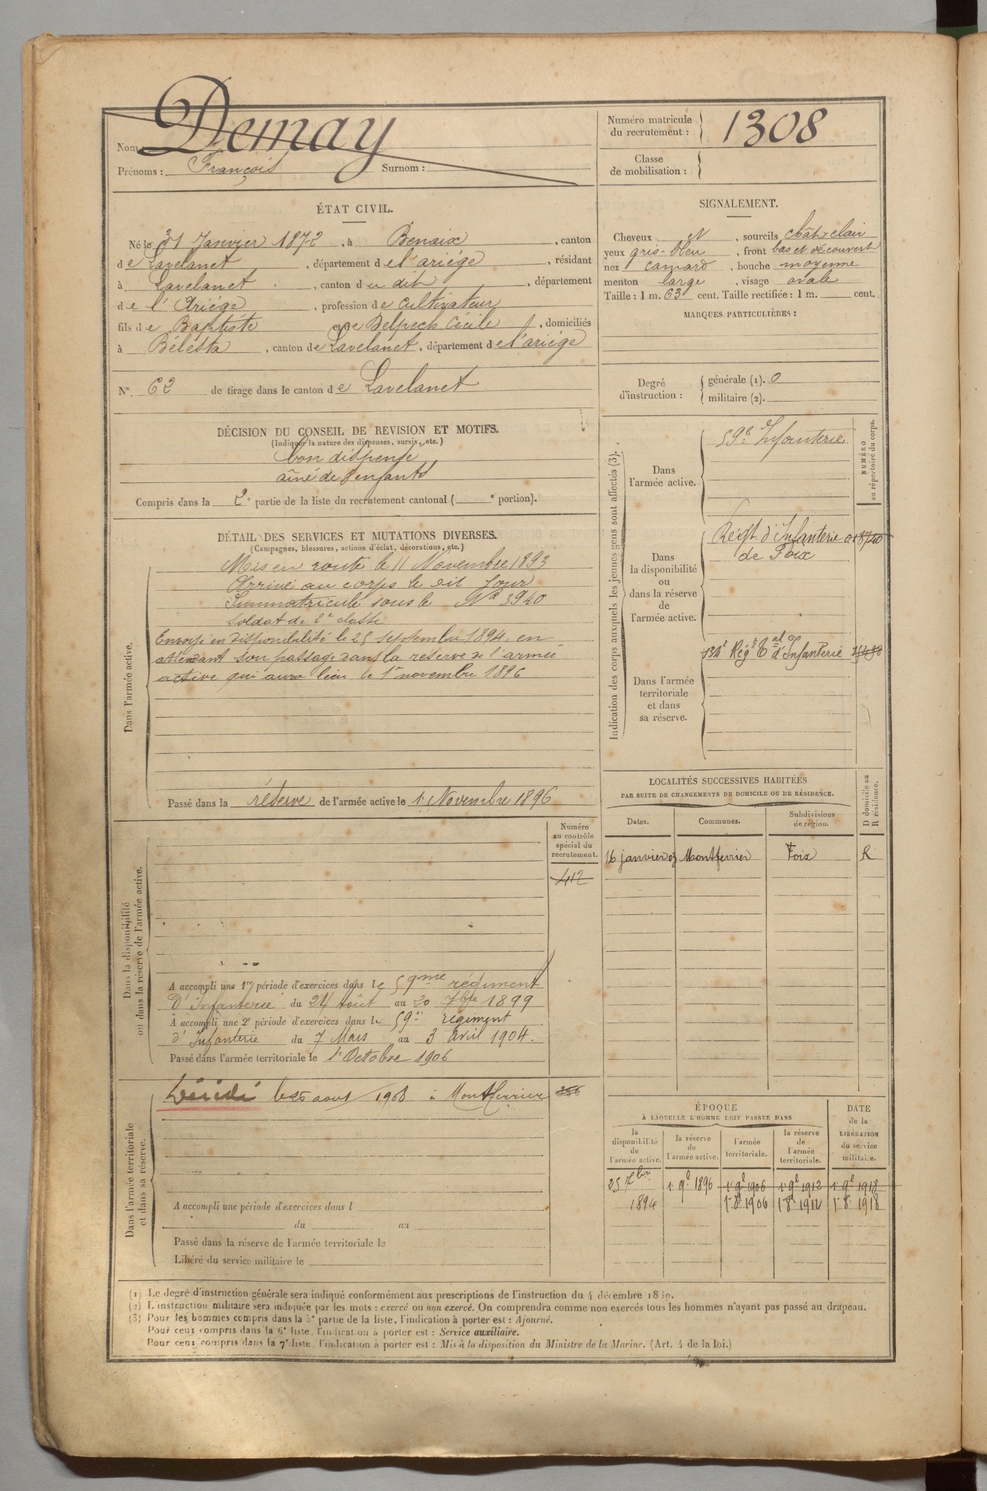 Nom : Demay
Prénoms : François Surnom :
Numéro matricule du recrutement : 1308
Classe de mobilisation :
ÉTAT CIVIL.
Né le 31 Janvier 1872, à Benaix, canton
de Lavelanet, département de l'ariége, résidant
à Lavelanet, canton du dit, département
de l'Ariége, profession de Cultivateur
fils de Baptiste et de Delpech Cécile, domiciliés
à Bélesta, canton de Lavelanet, département de l'ariége
N° 62 de tirage dans le canton de Lavelanet
SIGNALEMENT.
Cheveux N, sourcils chât-clair
yeux gris-bleu, front bas et découvert
nez camard, bouche moyenne
menton large, visage ovale
Taille : 1 m. 63 cent. Taille rectifiée : 1 m. cent.
MARQUES PARTICULIÈRES :
Degré d'instruction : générale (1). 0
militaire (2).
DÉCISION DU CONSEIL DE REVISION ET MOTIFS.
(Indiquer la nature des dispenses, sursis, etc.)
bon dispensé
aîné de enfants
Compris dans la 2e partie de la liste du recrutement cantonal ( e portion).
DÉTAIL DES SERVICES ET MUTATIONS DIVERSES.
(Campagnes, blessures, actions d'éclat, décorations, etc.)
Dans l'armée active.
Mis en route le 11 Novembre 1893
Arrivé au corps le dit jour
Immatriculé sous le No 3940
soldat de 2e classe
Envoyé en disponibilité le 25 septembre 1894, en
attendant son passage dans la réserve de l'armée
active qui aura lieu le 1er novembre 1896
Passé dans la réserve de l'armée active le 1 Novembre 1896
Indication des corps auxquels les jeunes gens sont affectés (3).
NUMÉRO au répertoire du corps.
Dans l'armée active.
59e Infanterie
Dans la disponibilité ou dans la réserve de l'armée active.
Régt d'Infanterie
de Foix
Dans l'armée territoriale et dans sa réserve.
134e Régt Tal d'Infanterie
LOCALITÉS SUCCESSIVES HABITÉES
PAR SUITE DE CHANGEMENTS DE DOMICILE OU DE RÉSIDENCE.
D domicile ou R résidence.
Dates. Communes. Subdivisions de région.
16 janvier 03 Montferrier Foix R
Dans la disponibilité ou dans la réserve de l'armée active.
Numéro au contrôle spécial du recrutement.
412
A accompli une 1re période d'exercices dans le 59me régiment
d'Infanterie du 24 Août au 20 7bre 1899
A accompli une 2e période d'exercices dans le 59e régiment
d'Infanterie du 7 Mars au 3 avril 1904.
Passé dans l'armée territoriale le 1er Octobre 1906
Dans l'armée territoriale et dans sa réserve.
Décédé le 25 aout 1908 à Montferrier
A accompli une période d'exercices dans l
du au
Passé dans la réserve de l'armée territoriale le
Libéré du service militaire le
ÉPOQUE
À LAQUELLE L'HOMME DOIT PASSER DANS
DATE de la LIBÉRATION du service militaire.
la disponibilité de l'armée active. la réserve de l'armée active. l'armée territoriale. la réserve de l'armée territoriale.
25 7bre 1 9b 1896 1 9b 1906 1 9b 1912 1 9b 1918
1894 1 8b 1906 1 8b 1912 1 8b 1918
(1) Le degré d'instruction générale sera indiqué conformément aux prescriptions de l'instruction du 4 décembre 1889.
(2) L'instruction militaire sera indiquée par les mots : exercé ou non exercé. On comprendra comme non exercés tous les hommes n'ayant pas passé au drapeau.
(3) Pour les hommes compris dans la 5e partie de la liste, l'indication à porter est : Ajourné.
Pour ceux compris dans la 6e liste, l'indication à porter est : Service auxiliaire.
Pour ceux compris dans la 7e liste, l'indication à porter est : Mis à la disposition du Ministre de la Marine. (Art. 4 de la loi.)